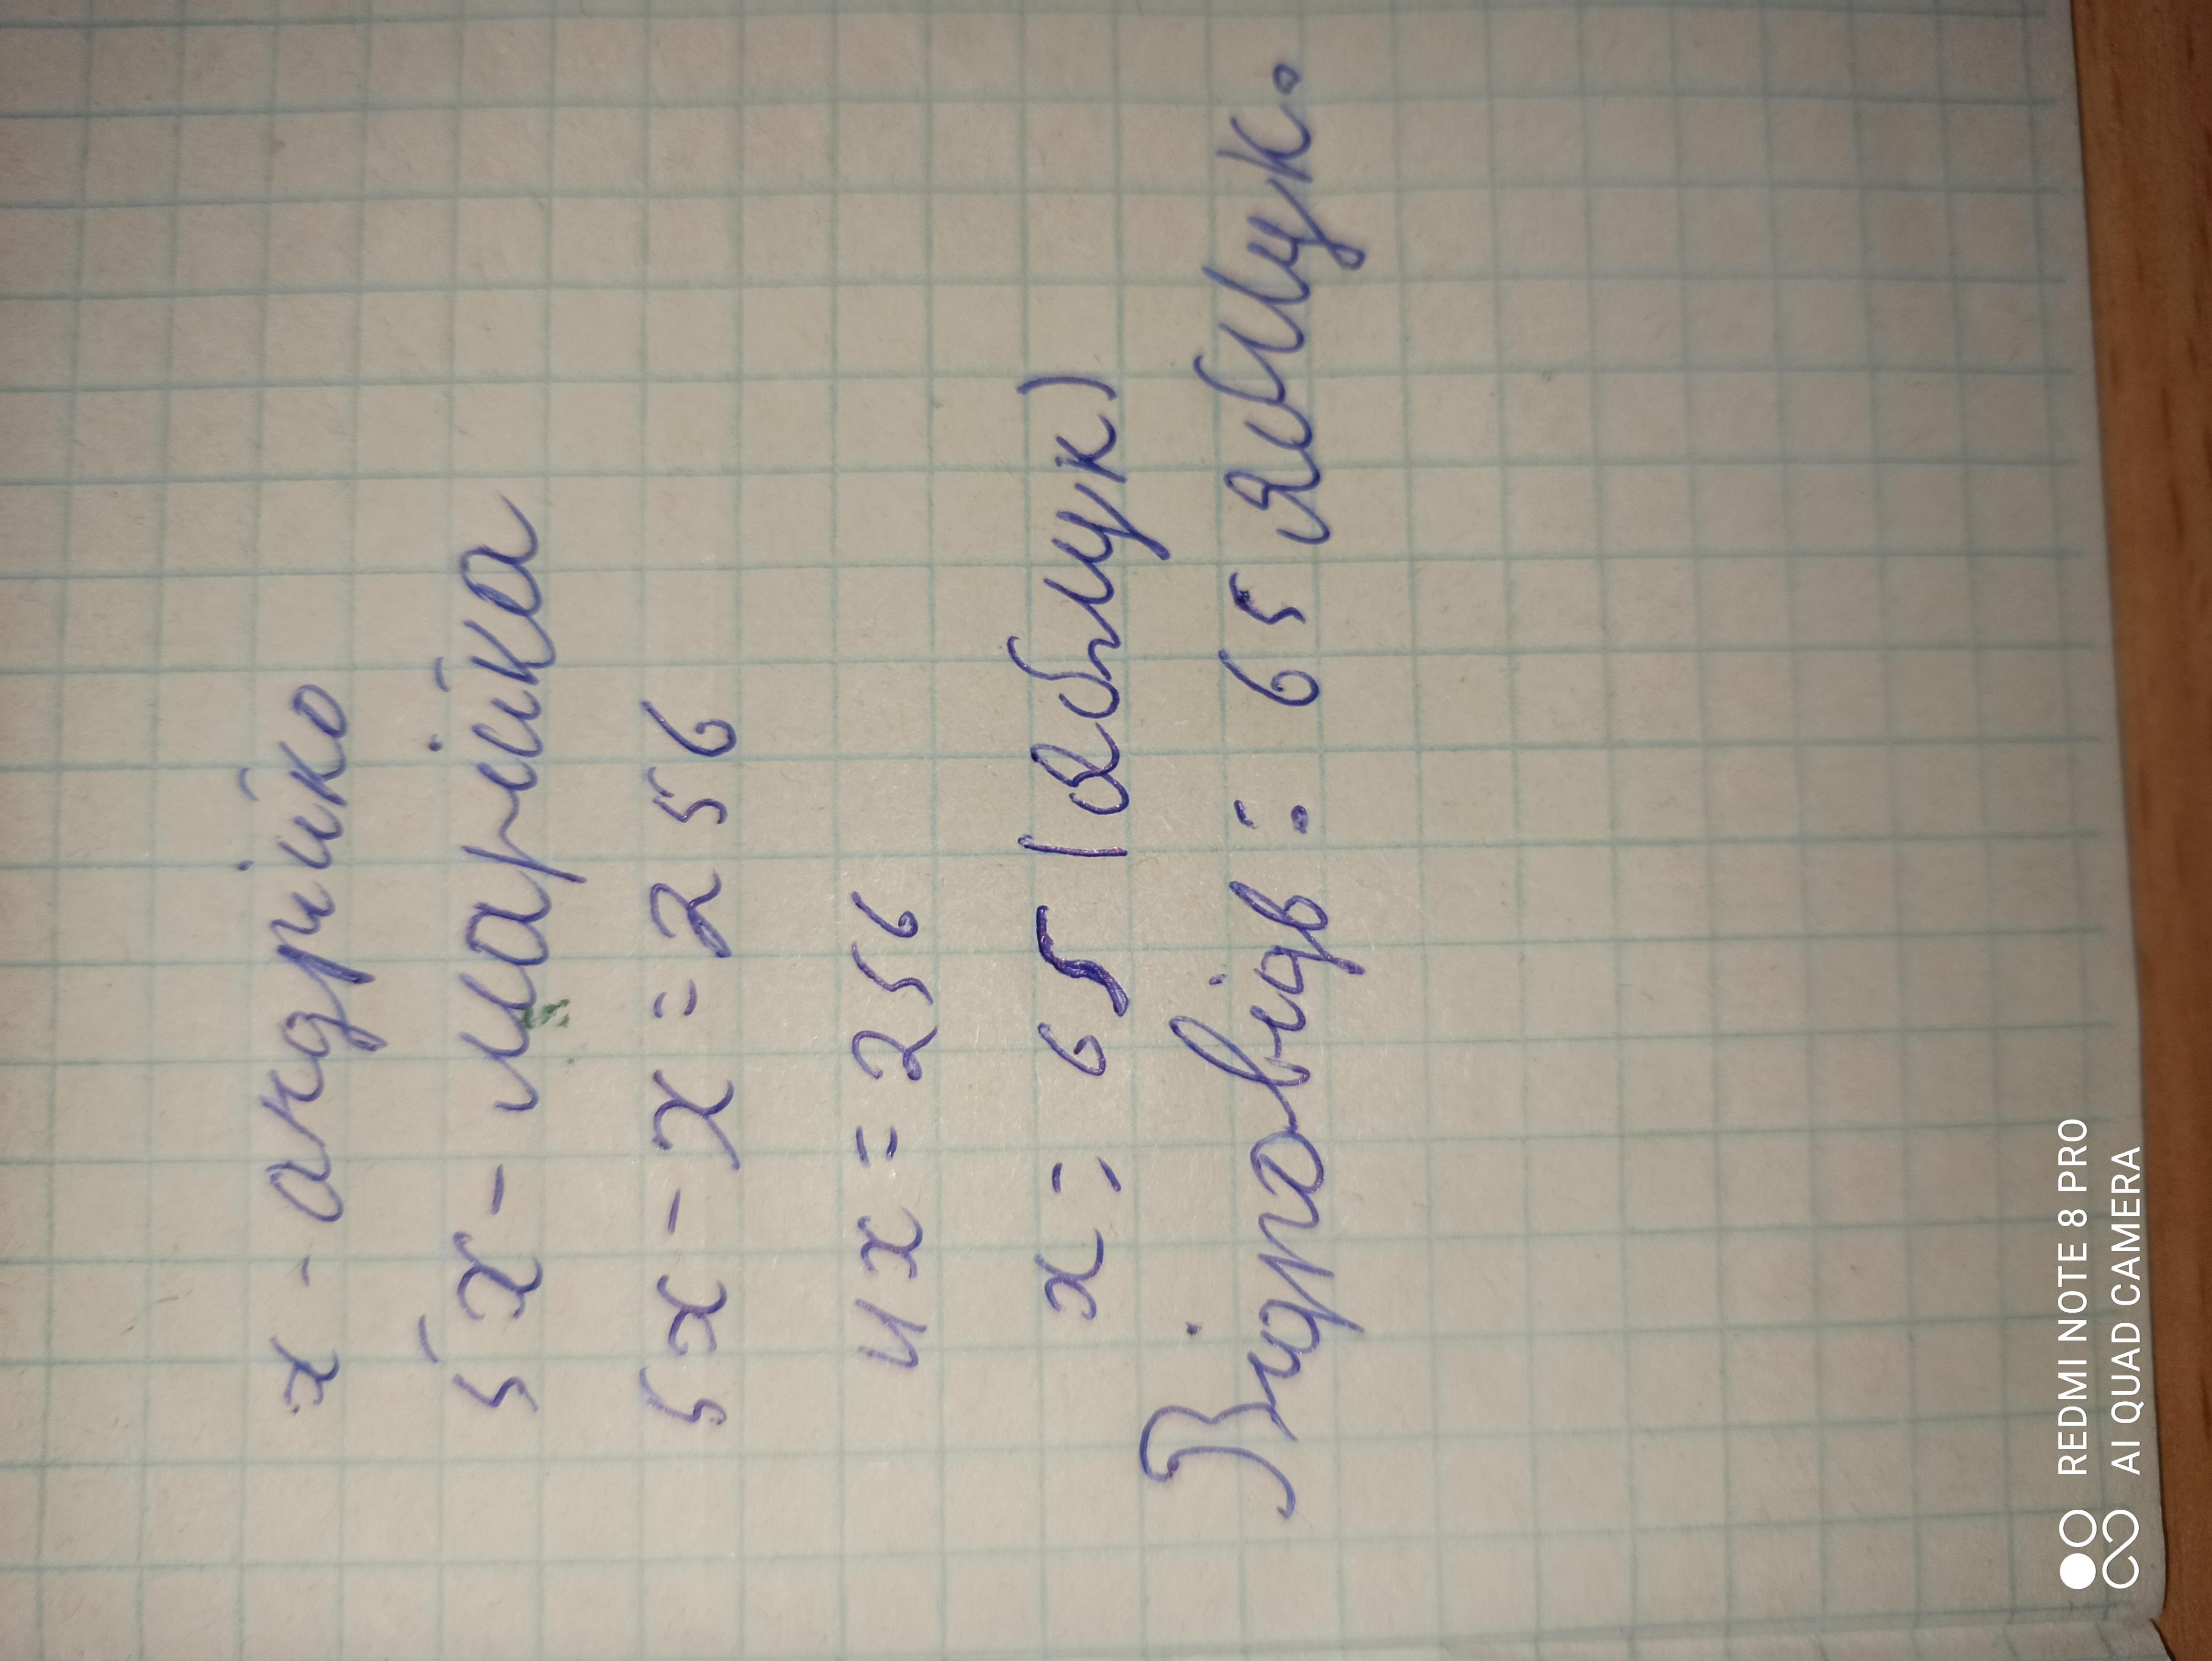 x - андрійко
5x - марійка
5x - x = 256
4x = 256
x = 65 (яблук)
Відповідь: 65 яблук.
REDMI NOTE 8 PRO
AI QUAD CAMERA